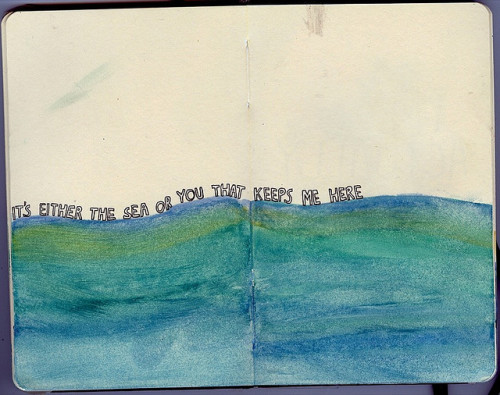 IT'S EITHER THE SEA OR YOU THAT KEEPS ME HERE